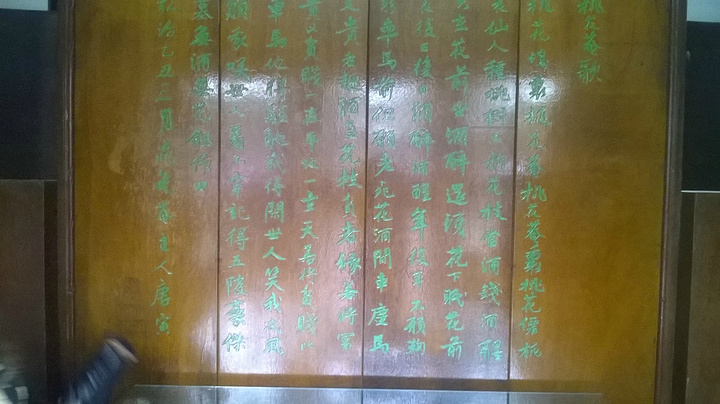 桃花庵歌
桃花塢裏桃花庵桃花庵裏桃花僊桃
花仙人種桃樹又折花枝當酒錢酒醒
只在花前坐酒醉還須花下眠花前
花後日復日酒醉酒醒年復年不願鞠
躬車馬前但願老死花酒間車塵馬
足貴者趣酒盞花枝貧者緣若將富
貴比貧賤一在平地一在天若將貧賤比
車馬他得驅馳我得閒世人笑我忒風
顛我咲世人看不穿記得五陵豪傑
墓無酒無花鋤作田
弘治乙丑三月桃花庵主人唐寅